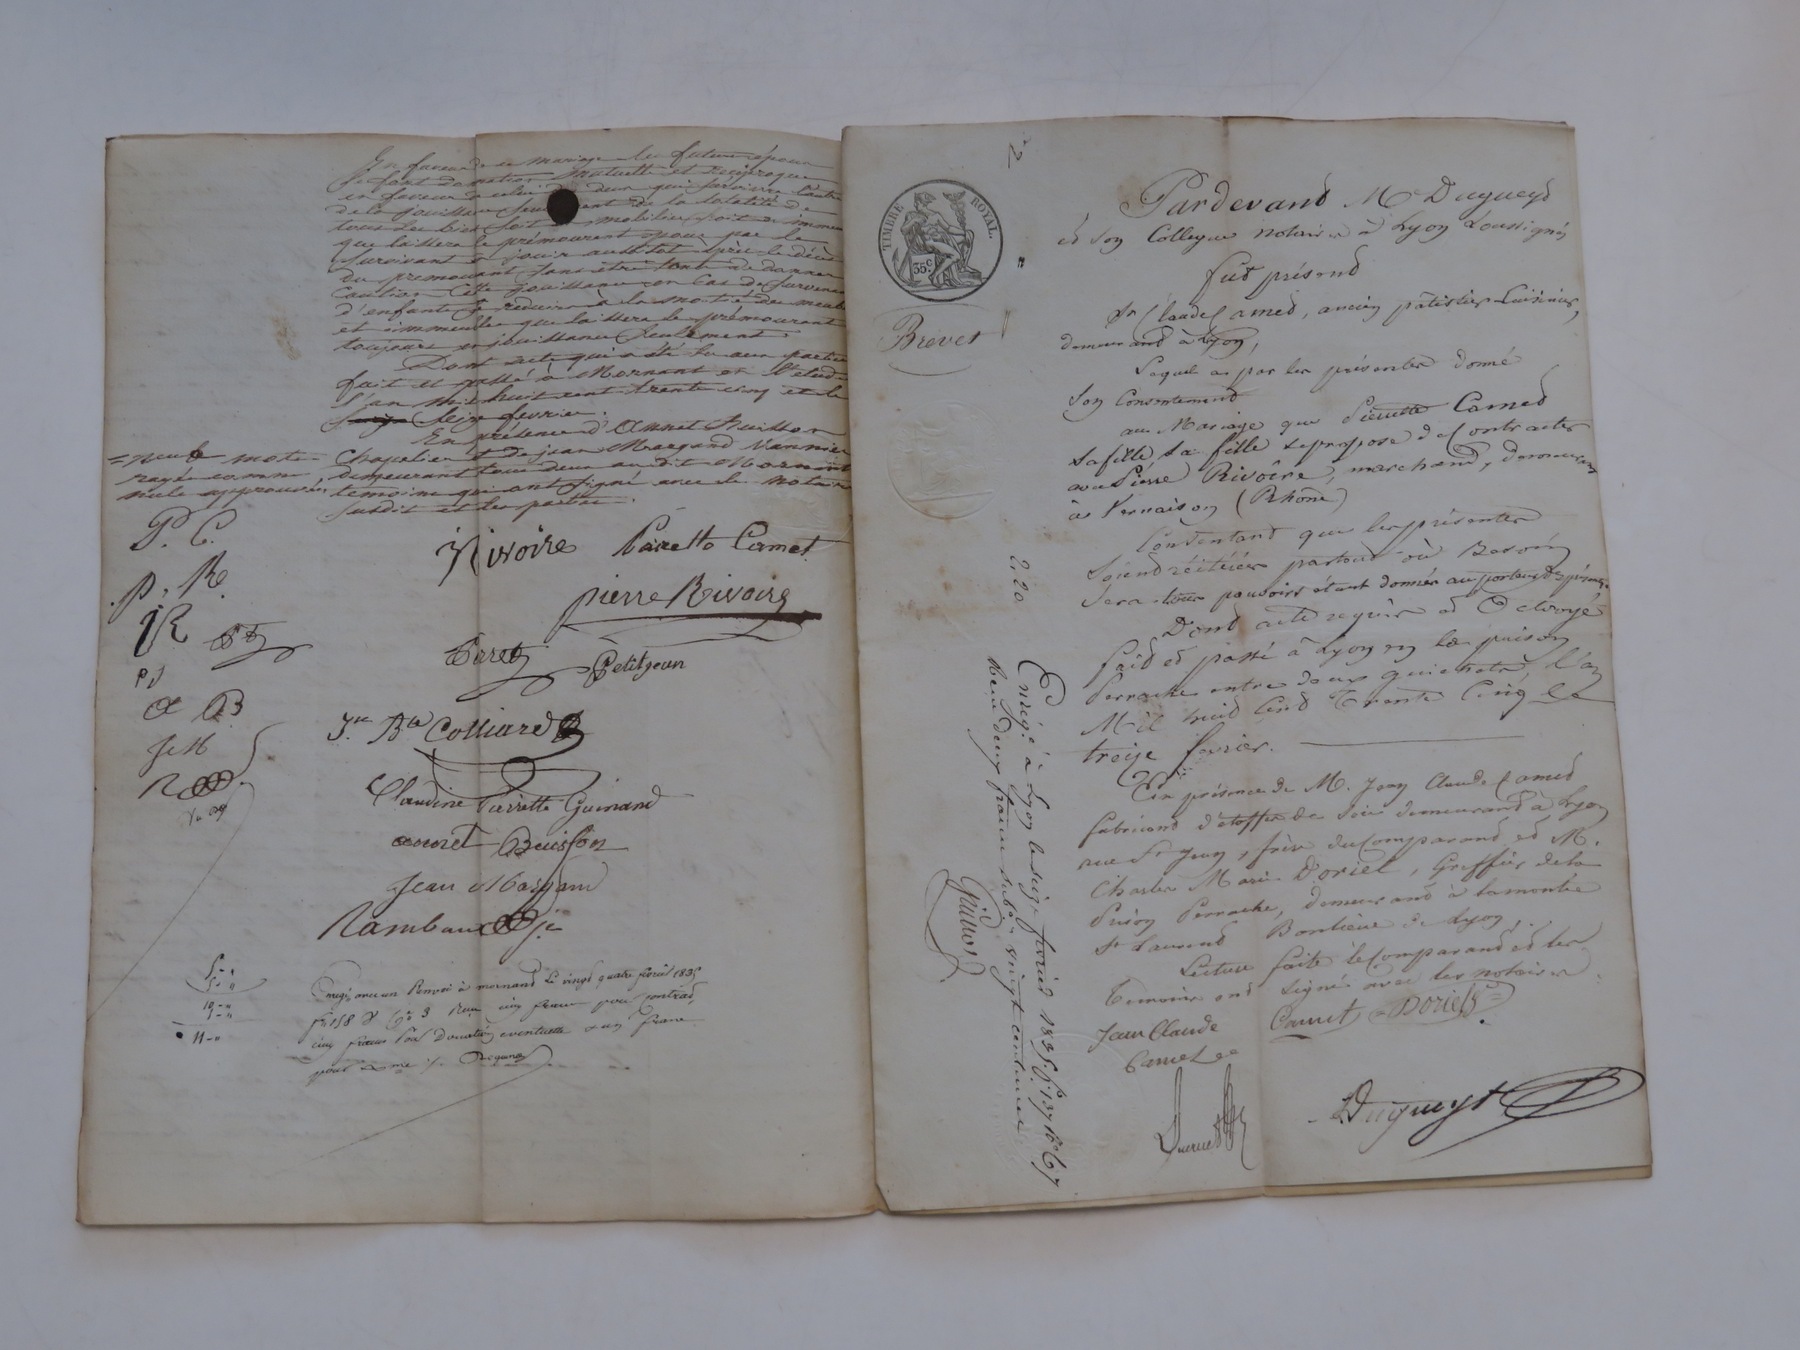 En faveur de ce mariage les futurs époux
se font donation mutuelle et réciproque
en faveur de celui de deux qui survivra l'autre
de la jouissance seulement de la totalité de
tous les bien soit mobiliers soit immeu
que laissera le prémourant pour par le
survivant en jouir aussitôt après le décès
du prémourant sans être tenu de donner
caution Cette jouissance en cas de survenance
d'enfants se réduira à la moitié des meuble
et immeuble que laissera le prémourant
toujours en jouissance seulement
Dont acte qui a été lu aux parties
fait et passé à Mornant en l'etude
l'an mil huit cent trente cinq et le
seize fevrier.
En présence d'Annet Buisson
Chapelier et de jean Margand Vannier
demeurant tous deux au dit Mornant
temoins qui ont signé avec le notaire
susdit et les parties.
= neuf mots
rayés comme
nuls approuvés
P. C.
p. R.
JR
PJ
A B
Je M
R
Rivoire Pairette Camet
pierre Rivoire
Petitjean
Jn Bte Colliard
Claudine Pierrette Guinand
annet Buisson
Jean Margand
Rambaud
5 - "
5 - "
10 - "
1 - "
11 - "
Enregé avec un Renvoi à mornand le vingt quatre fevrier 1835
fo 158 Vo Ce 3 Reçu cinq francs pour contrat,
cinq francs pour Donation eventuelle et un franc
pour dixme
2
TIMBRE ROYAL.
35c
Brevet
Pardevand Me Dugueyt
et son Collegue notaires à Lyon soussignés
fut présend
Sr Claude Camet, ancien pâtissier Cuisinier,
demeurand à Lyon,
Lequel a par les présentes donné
son Consentement
au Mariage que Pierrette Camet
sa fille sa fille se propose de Contracter
avec Pierre Rivoire, marchand, demeurand
à Vernaison (Rhône)
Consentant que les présentes
soient réitérées partout où Besoin
sera tous pouvoirs étant donnés au porteur des présentes.
Dont acte requis et Octroyé
fait et passé à Lyon en la prison
Perrache entre deux guichets, l'an
Mil huit Cent Trente Cinq le
treize fevrier.
En présence de M. Jean Claude Camet
fabricand d'étoffes de soie demeurand à Lyon
rue St Jean, frère du Comparand et M.
Charles Marie Doriel, Greffier de la
Prison Perrache, demeurand à la montée
St Laurend Banlieue de Lyon,
Lecture faite le Comparand et les
Temoins ont signé avec les notaires.
Jean Claude
Camet
Camet Doriel
Dugueyt
2,20
Enregé à Lyon le seize fevrier 1835. fo 137
Reçu Deux francs subon vingt centimes